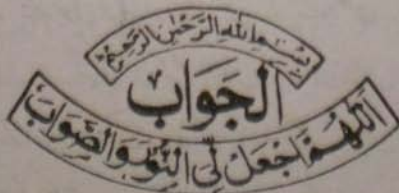 بِسْمِ اللهِ الرَّحْمٰنِ الرَّحِيْمِ
اَلجَوَاب
اَللّٰهُمَّ اجْعَلْ لِّي النُّوْرَ وَالصَّوَابَ